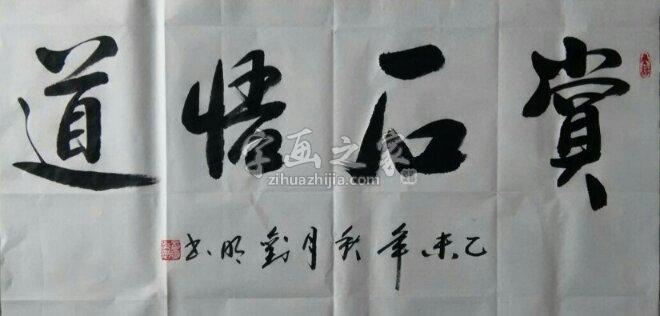 賞石悟道
乙未年秋月劉明书
字画之家
zihuazhijia.com